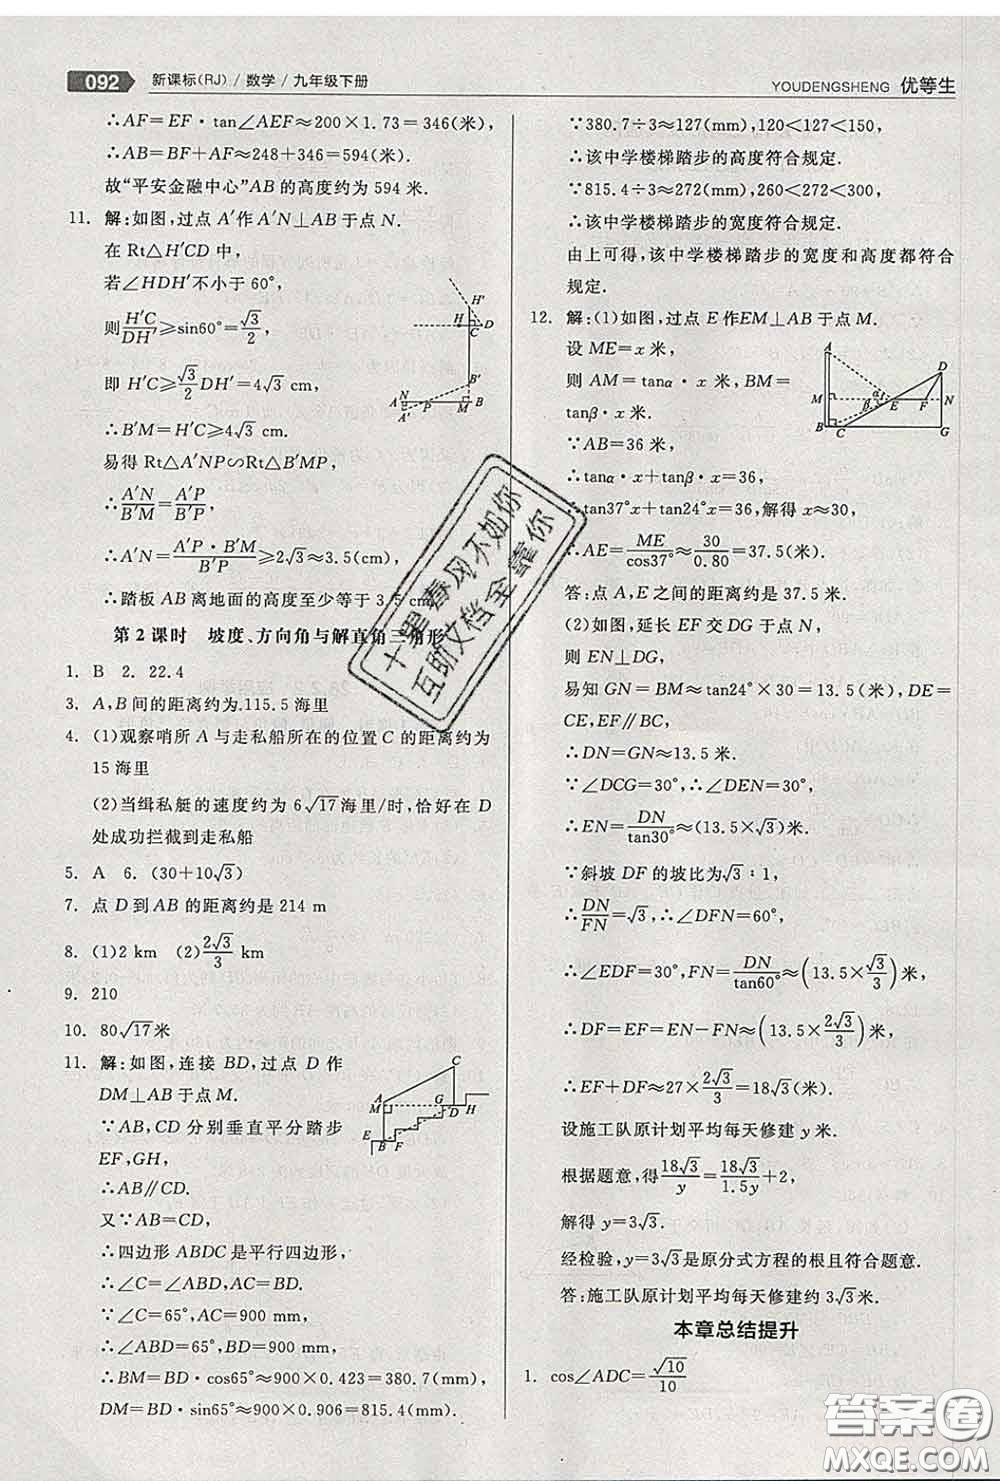 092 新课标(RJ)/数学/九年级下册
YOUDENGSHENG 优等生
∴AF=EF·tan∠AEF≈200×1.73=346(米),
∴AB=BF+AF≈248+346=594(米).
故“平安金融中心”AB的高度约为594米.
11. 解:如图,过点A′作A′N⊥AB于点N.
在Rt△H′CD中,
若∠HDH′不小于60°,
则H′C/DH′≥sin60°=√3/2,
即H′C≥√3/2DH′=4√3 cm,
∴B′M=H′C≥4√3 cm.
易得Rt△A′NP∽Rt△B′MP,
∴A′N/B′M=A′P/B′P,
∴A′N=A′P·B′M/B′P≥2√3≈3.5(cm),
∴踏板AB离地面的高度至少等于3.5 cm.
H′
H C D
A N P M B
A′
第2课时 坡度、方向角与解直角三角形
1. B 2. 22.4
3. A,B间的距离约为115.5海里
4. (1)观察哨所A与走私船所在的位置C的距离约为
15海里
(2)当缉私艇的速度约为6√17海里/时,恰好在D
处成功拦截到走私船
5. A 6. (30+10√3)
7. 点D到AB的距离约是214 m
8. (1)2 km (2)2√3/3 km
9. 210
10. 80√17米
11. 解:如图,连接BD,过点D作
DM⊥AB于点M.
∵AB,CD分别垂直平分踏步
EF,GH,
∴AB∥CD.
又∵AB=CD,
∴四边形ABDC是平行四边形,
∴∠C=∠ABD,AC=BD.
∵∠C=65°,AC=900 mm,
∴∠ABD=65°,BD=900 mm,
∴BM=BD·cos65°≈900×0.423=380.7(mm),
DM=BD·sin65°≈900×0.906=815.4(mm).
C
A
M G D H
E B F
∵380.7÷3≈127(mm),120<127<150,
∴该中学楼梯踏步的高度符合规定.
∵815.4÷3≈272(mm),260<272<300,
∴该中学楼梯踏步的宽度符合规定.
由上可得,该中学楼梯踏步的宽度和高度都符合
规定.
12. 解:(1)如图,过点E作EM⊥AB于点M.
设ME=x米,
则AM=tanα·x米,BM=
tanβ·x米.
∵AB=36米,
∴tanα·x+tanβ·x=36,
∴tan37°x+tan24°x=36,解得x≈30,
∴AE=ME/cos37°≈30/0.80=37.5(米).
答:点A,E之间的距离约是37.5米.
A D
M α β E F N
B C G
(2)如图,延长EF交DG于点N,
则EN⊥DG,
易知GN=BM≈tan24°×30=13.5(米),DE=
CE,EF∥BC,
∴DN=GN≈13.5米.
∵∠DCG=30°,∴∠DEN=30°,
∴EN=DN/tan30°≈(13.5×√3)米.
∵斜坡DF的坡比为√3∶1,
∴DN/FN=√3,∴∠DFN=60°,
∴∠EDF=30°,FN=DN/tan60°≈(13.5×√3/3)米,
∴DF=EF=EN−FN≈(13.5×2√3/3)米,
∴EF+DF≈27×2√3/3=18√3(米).
设施工队原计划平均每天修建y米.
根据题意,得18√3/y=18√3/1.5y+2,
解得y=3√3.
经检验,y=3√3是原分式方程的根且符合题意.
答:施工队原计划平均每天修建约3√3米.
本章总结提升
1. cos∠ADC=√10/10
十里春风不如你
互助文档全靠你
答案圈
MXQE.COM